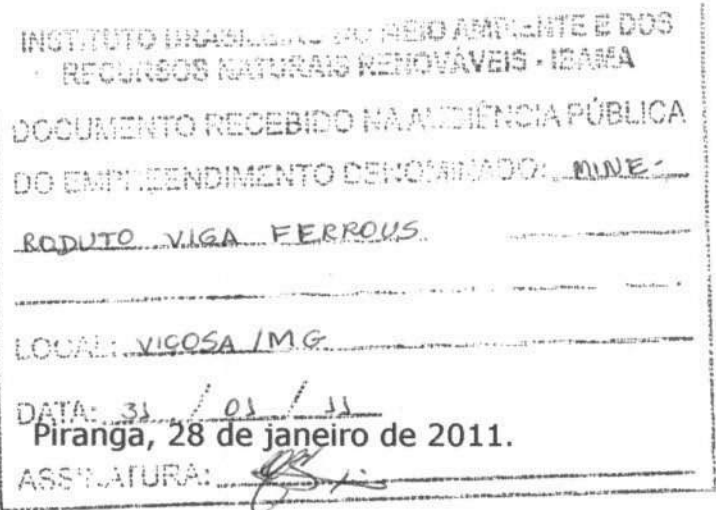 INSTITUTO BRASILEIRO DO MEIO AMBIENTE E DOS
RECURSOS NATURAIS RENOVÁVEIS - IBAMA
DOCUMENTO RECEBIDO NA AUDIÊNCIA PÚBLICA
DO EMPREENDIMENTO DENOMINADO: MINE-
RODUTO VIGA FERROUS
LOCAL: VIÇOSA / MG
DATA: 31 / 01 / 11
Piranga, 28 de janeiro de 2011.
ASSINATURA: